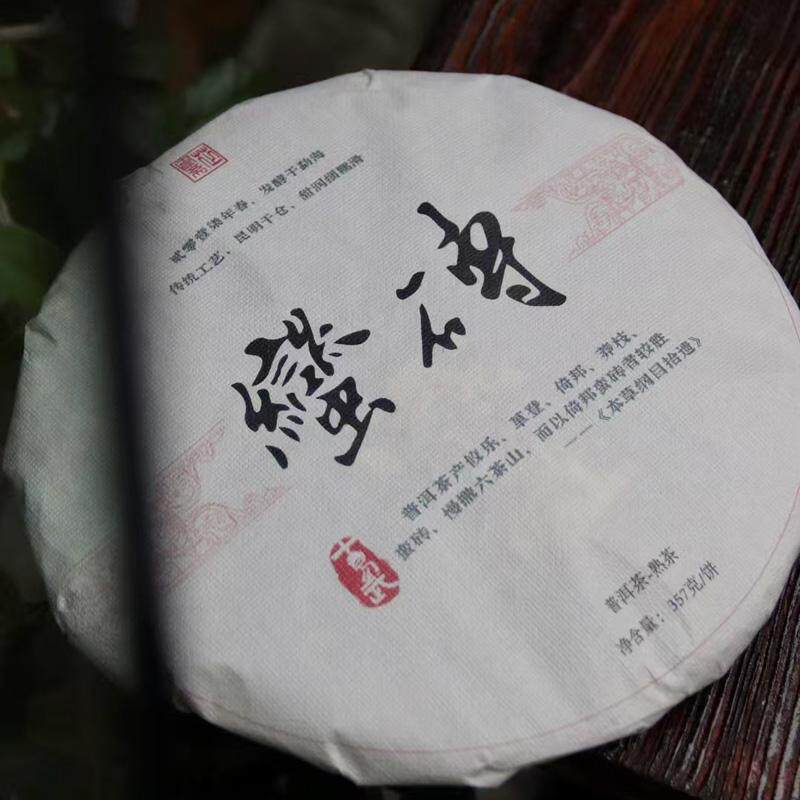 贰零壹柒年春、发酵于勐海
传统工艺、昆明干仓、甜润
蠻磚
普洱茶产攸乐、革登、倚邦、莽枝、
蛮砖、慢撒六茶山，而以倚邦蛮砖者较胜
——《本草纲目拾遗》
普洱茶-熟茶
净含量：357克/饼